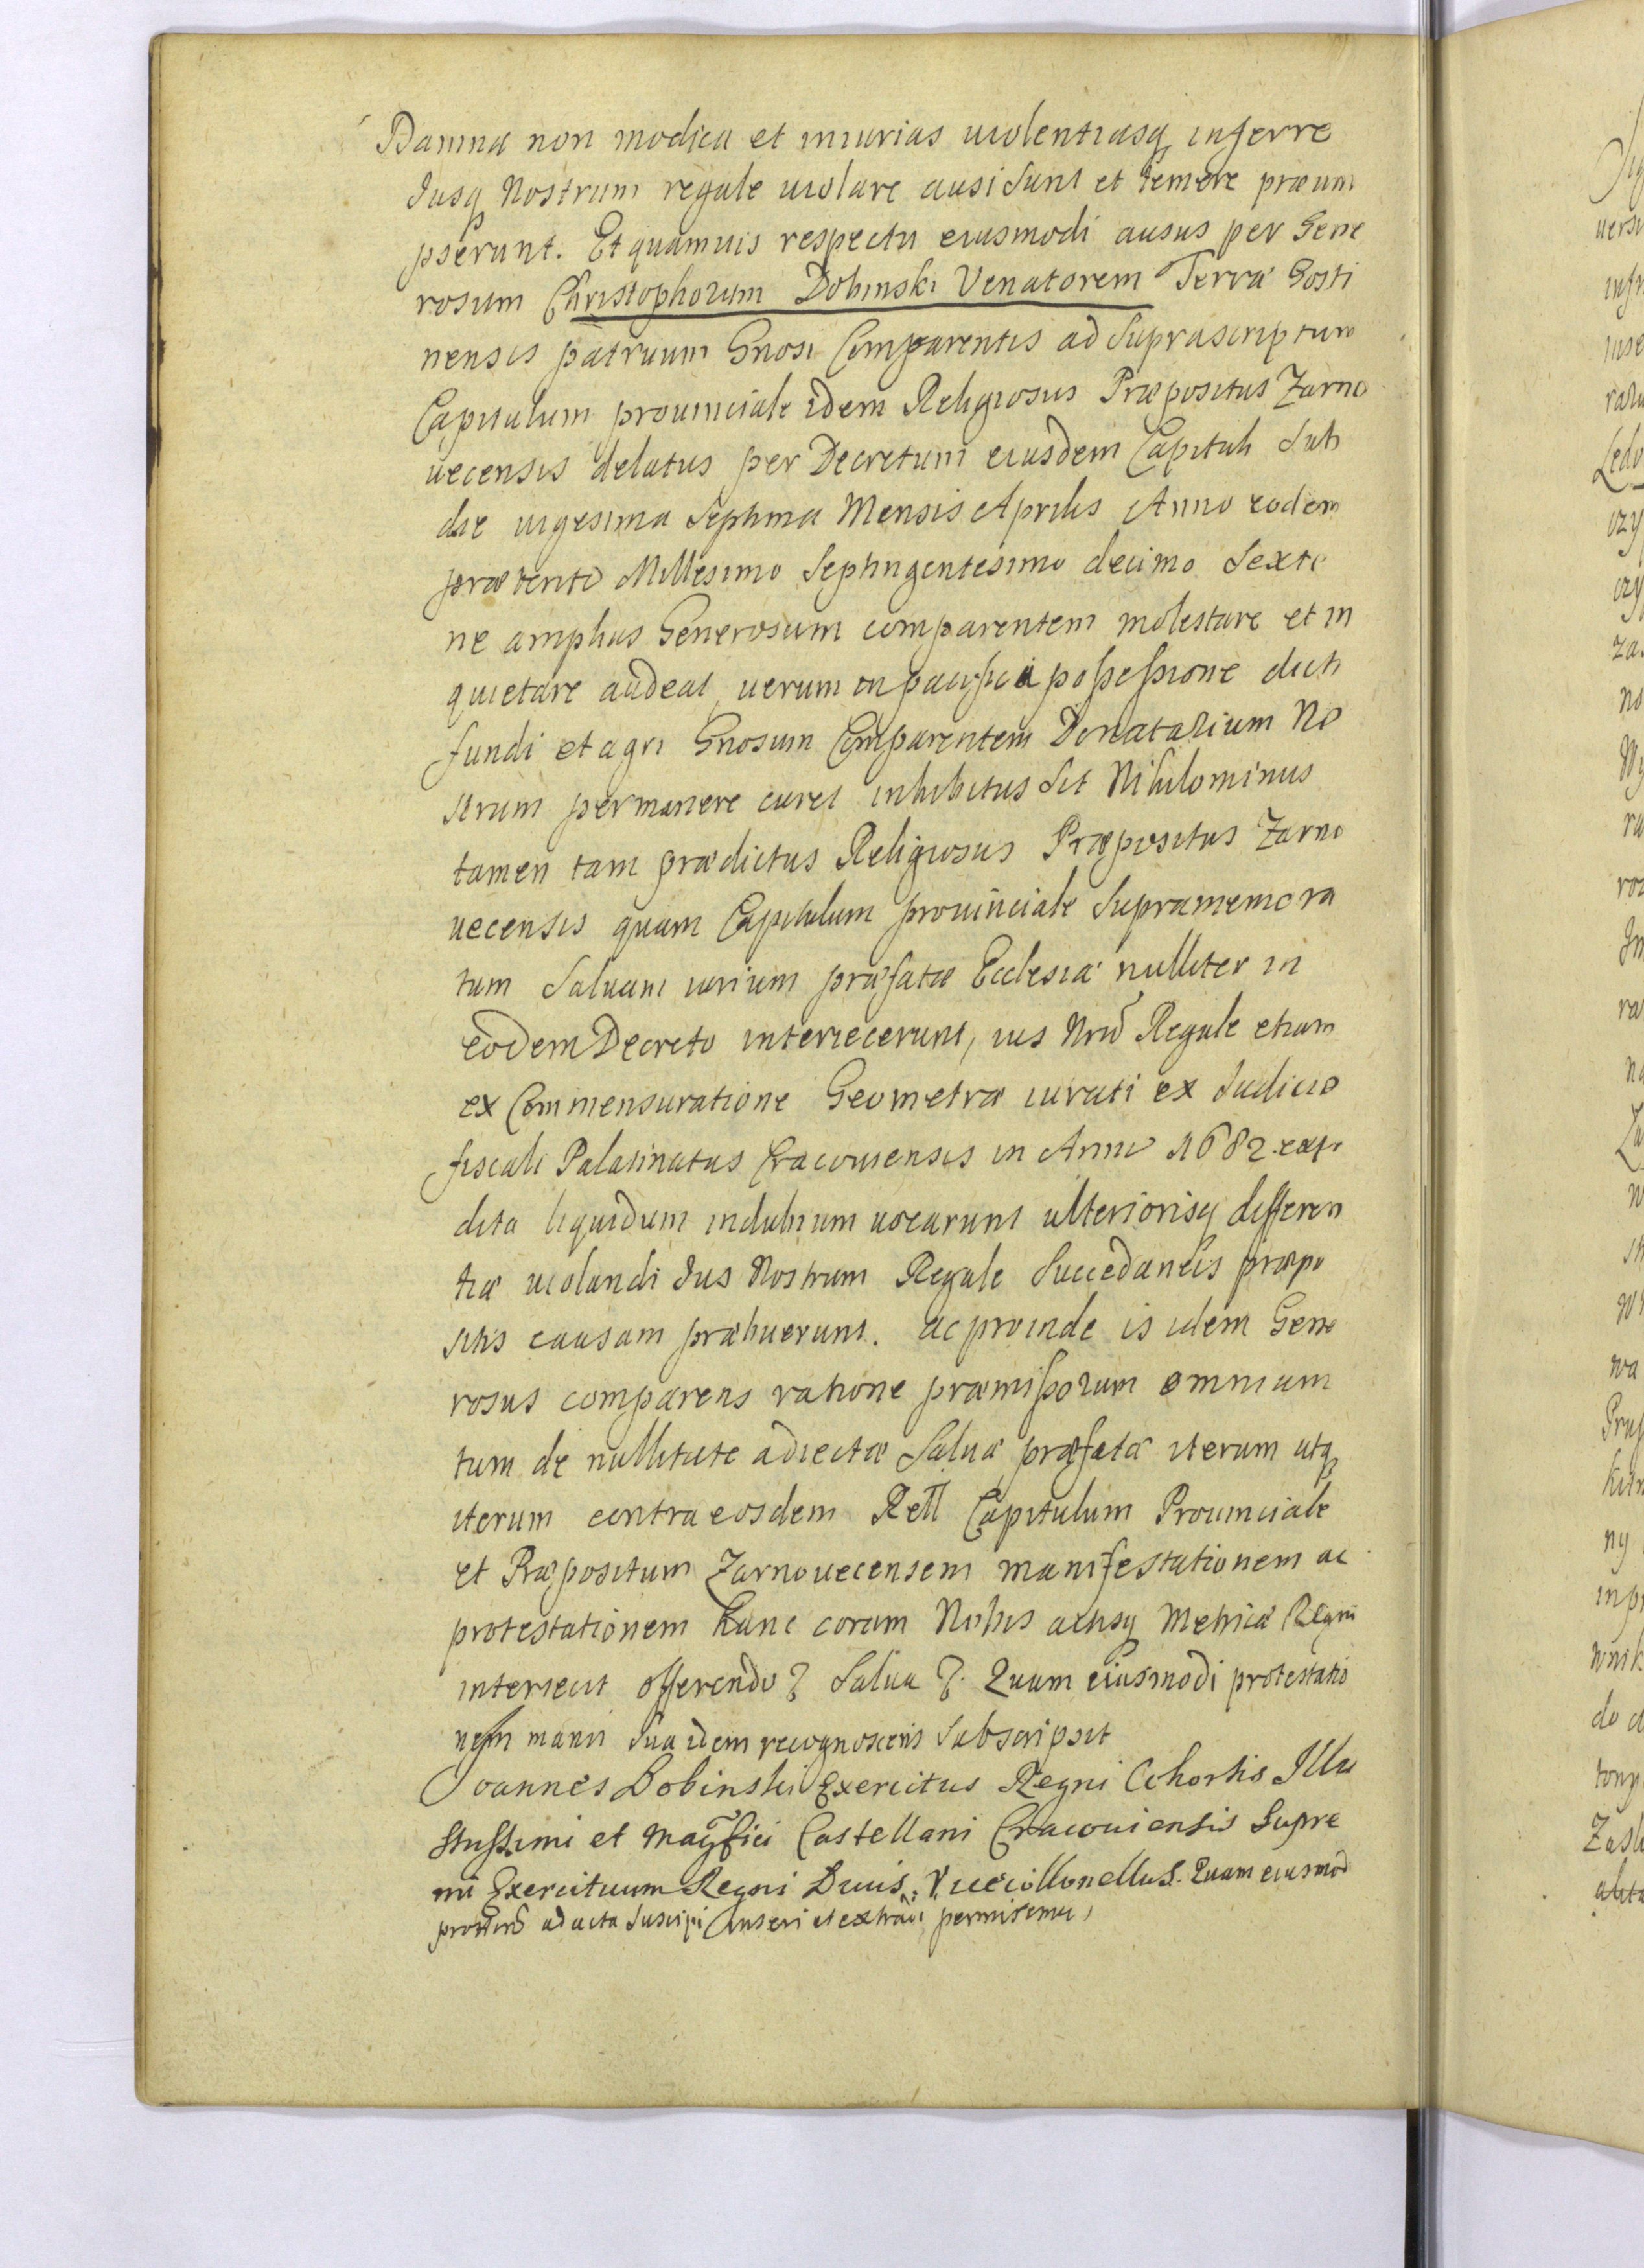 Damna non modica et iniurias uiolentiasq inferre
Jusq Nostrum regale uiolare ausi sunt et temere præsum
pserunt. Et quamuis respectu eiusmodi ausus per Gene
rosum Christophorum Dobinski Venatorem Terræ Gosti
nensis patruum Gnosi Comparentis ad suprascriptum
Capitulum prouinciale idem Religiosus Præpositus Zarno
uecensis delatus per Decretum eiusdem Capituli sub
die uigesima septima Mensis Aprilis Anno eodem
præsenti Millesimo Septingentesimo decimo sexto
ne amplius Generosum comparentem molestare et in
quietare audeat uerum in pacifica possessione dicti
fundi et agri Gnosum Comparentem Donatarium No
strum permanere curet inhibitus sit Nihilominus
tamen tam prædictus Religiosus Præpositus Zarno
uecensis quam Capitulum prouinciale supramemora
tum saluam iurium præfatæ Ecclesiæ nulliter in
eodem Decreto interiecerunt, ius Nrũ Regale etiam
ex Commensuratione Geometræ iurati ex Judicio
fiscali Palatinatus Cracouiensis in Anno 1682. expe
dita liquidum in dubium uocarunt ulteriorisq differen
tiæ uiolandi Jus Nostrum Regale succedaneis præpo
sitis causam præbuerunt. ac proinde is idem Gene
rosus comparens ratione præmissorum omnium
tum de nullitate adiectæ saluæ præfatæ iterum atq
iterum contra eosdem Rell Capitulum Prouinciale
et Præpositum Zarnouecensem manifestationem ac
protestationem hanc coram Nobis actisq Metricæ Regni
interiecit offerendo & salua &. Quam eiusmodi protestatio
nem manu sua idem recognoscens subscripsit
Joannes Dobinski Exercitus Regni Cohortis Illu
strissimi et Magfici Castellani Cracouiensis Supre
mi Exercituum Regni Ducis. Vicecollonellus. Quam eiusmod
protnẽ ad acta suscipi inseri et extradi permisimus,